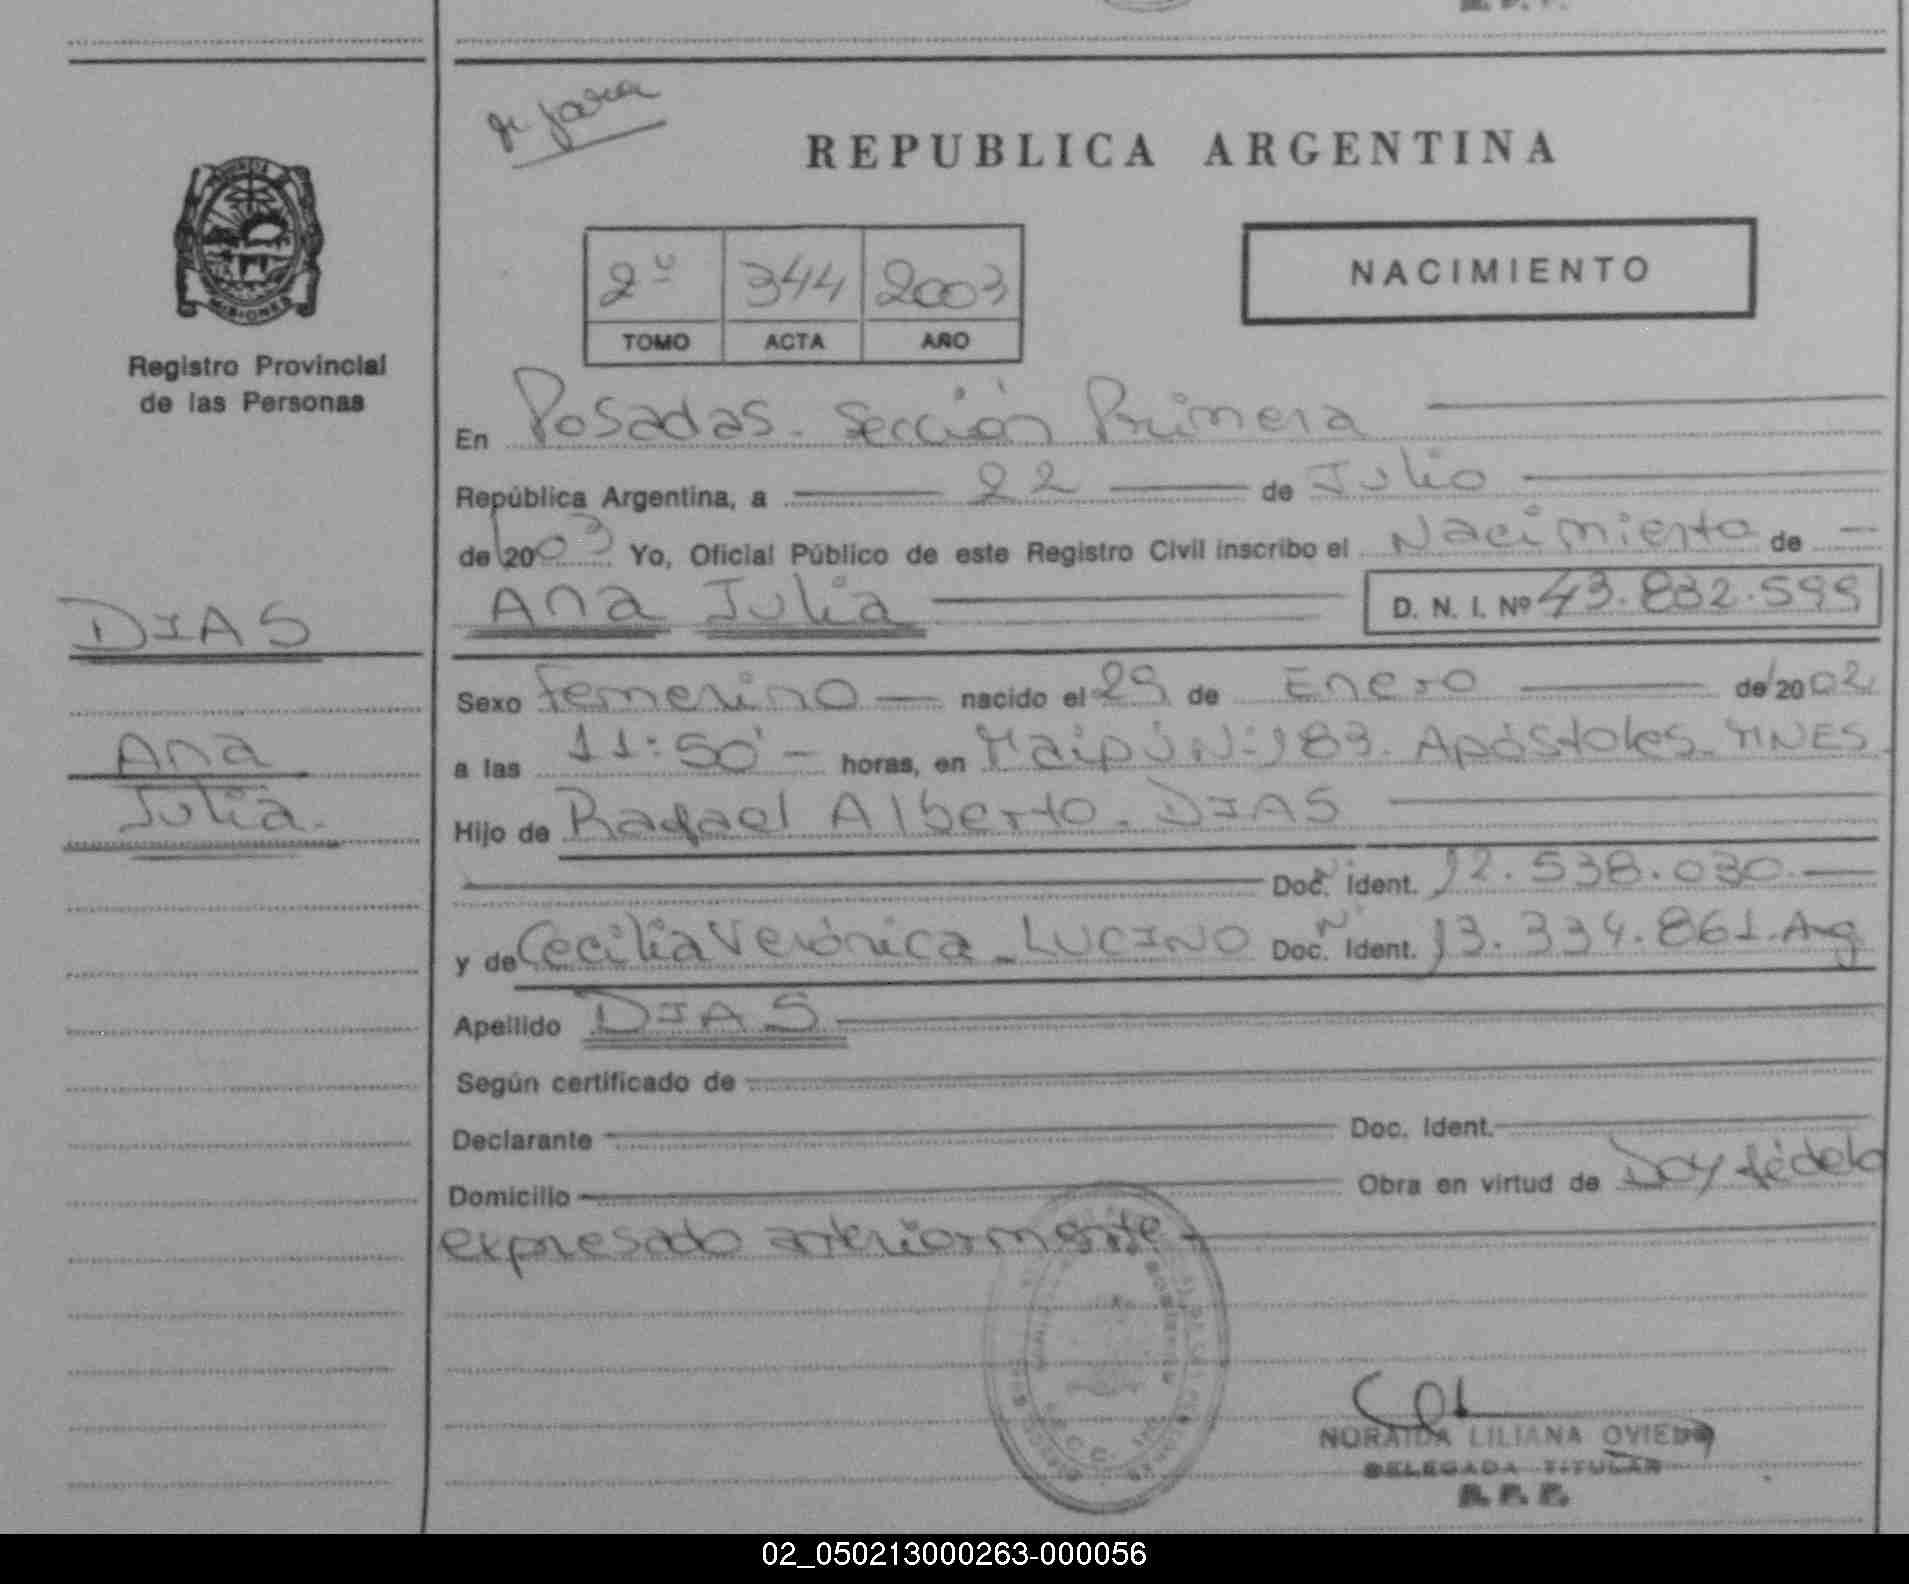 REPUBLICA ARGENTINA
2º 344 2003
TOMO ACTA AÑO
NACIMIENTO
MISIONES
Registro Provincial
de las Personas
En Posadas. Sección Primera
República Argentina, a 22 de Julio
de 2003 Yo, Oficial Público de este Registro Civil inscribo el Nacimiento de
Ana Julia D. N. I. Nº 43.832.599
DIAS
Sexo Femenino nacido el 29 de Enero de 2002
Ana
a las 11:50' horas, en Maipú Nº 183. Apóstoles. MNES.
Julia.
Hijo de Rafael Alberto. DIAS
Doc. Ident. Nº 12.538.030.
y de Cecilia Verónica LUCINO Doc. Ident. Nº 13.334.861. Arg
Apellido DIAS
Según certificado de
Declarante Doc. Ident.
Domicilio Obra en virtud de Doy fé de lo
expresado anteriormente
NORAIDA LILIANA OVIEDO
DELEGADA TITULAR
R. P. P.
02_050213000263-000056